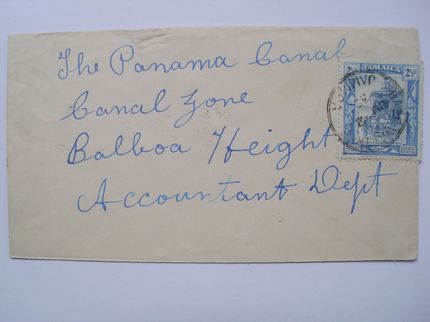 The Panama Canal
Canal Zone
Balboa Height
Accountant Dept
JAMAICA
2½
JAMAICA